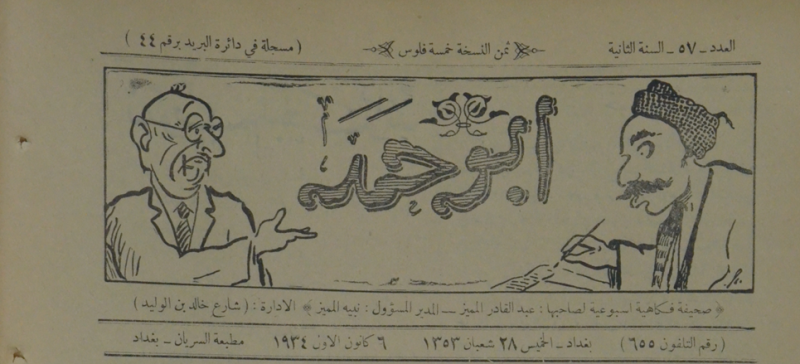 العدد - ٥٧ - السنة الثانية ثمن النسخة خمسة فلوس (مسجلة في دائرة البريد برقم ٤٤)
ابو حمد
صحيفة فكاهية اسبوعية لصاحبها: عبدالقادر المميز - المدير المسؤول: نبيه المميز الادارة: (شارع خالد بن الوليد)
(رقم التلفون ٦٥٥) بغداد - الخميس ٢٨ شعبان ١٣٥٣ ٦ كانون الاول ١٩٣٤ مطبعة السريان - بغداد